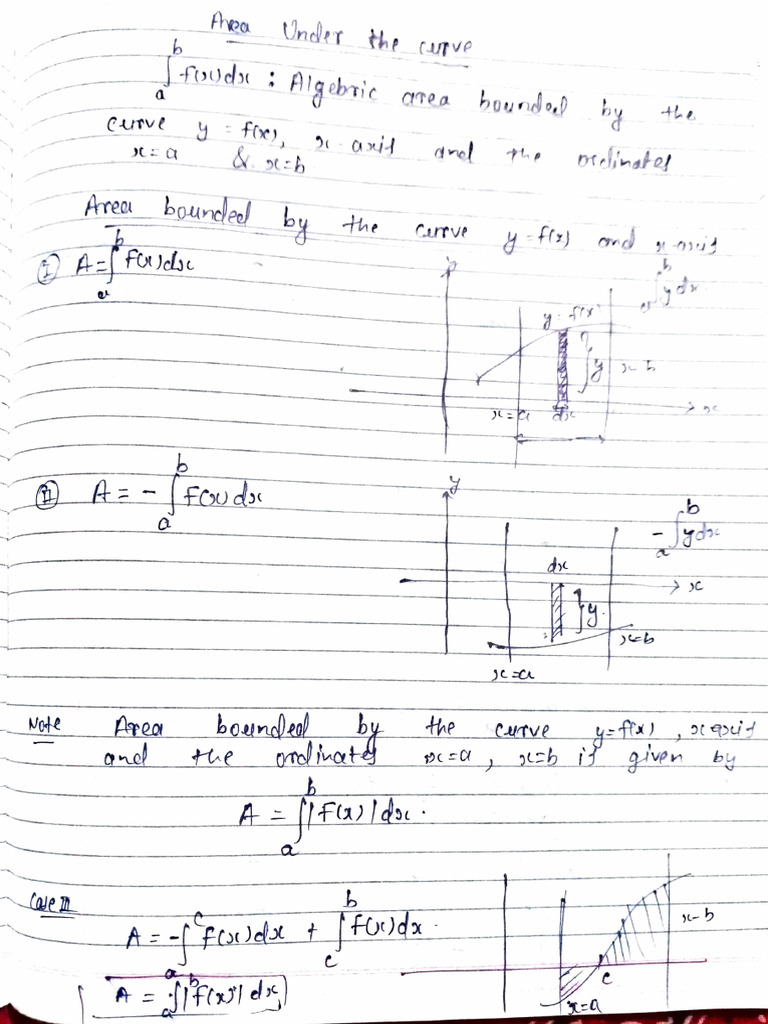 Area Under the curve
∫_a^b f(x)dx : Algebric area bounded by the
curve y = f(x), x-axis and the ordinates
x=a & x=b
Area bounded by the curve y=f(x) and x-axis
Ⓘ A = ∫_a^b f(x)dx
∫_a^b y dx
y
y = f(x)
y
x=b
x=a
dx
x
Ⓘⓘ A = - ∫_a^b f(x)dx
y
- ∫_a^b y dx
dx
x
y
x=b
x=a
Note Area bounded by the curve y=f(x), x-axis
and the ordinates x=a, x=b is given by
A = ∫_a^b |f(x)| dx.
Case III
A = -∫_a^c f(x)dx + ∫_c^b f(x)dx.
A = ∫_a^b |f(x)| dx
x=b
c
x=a